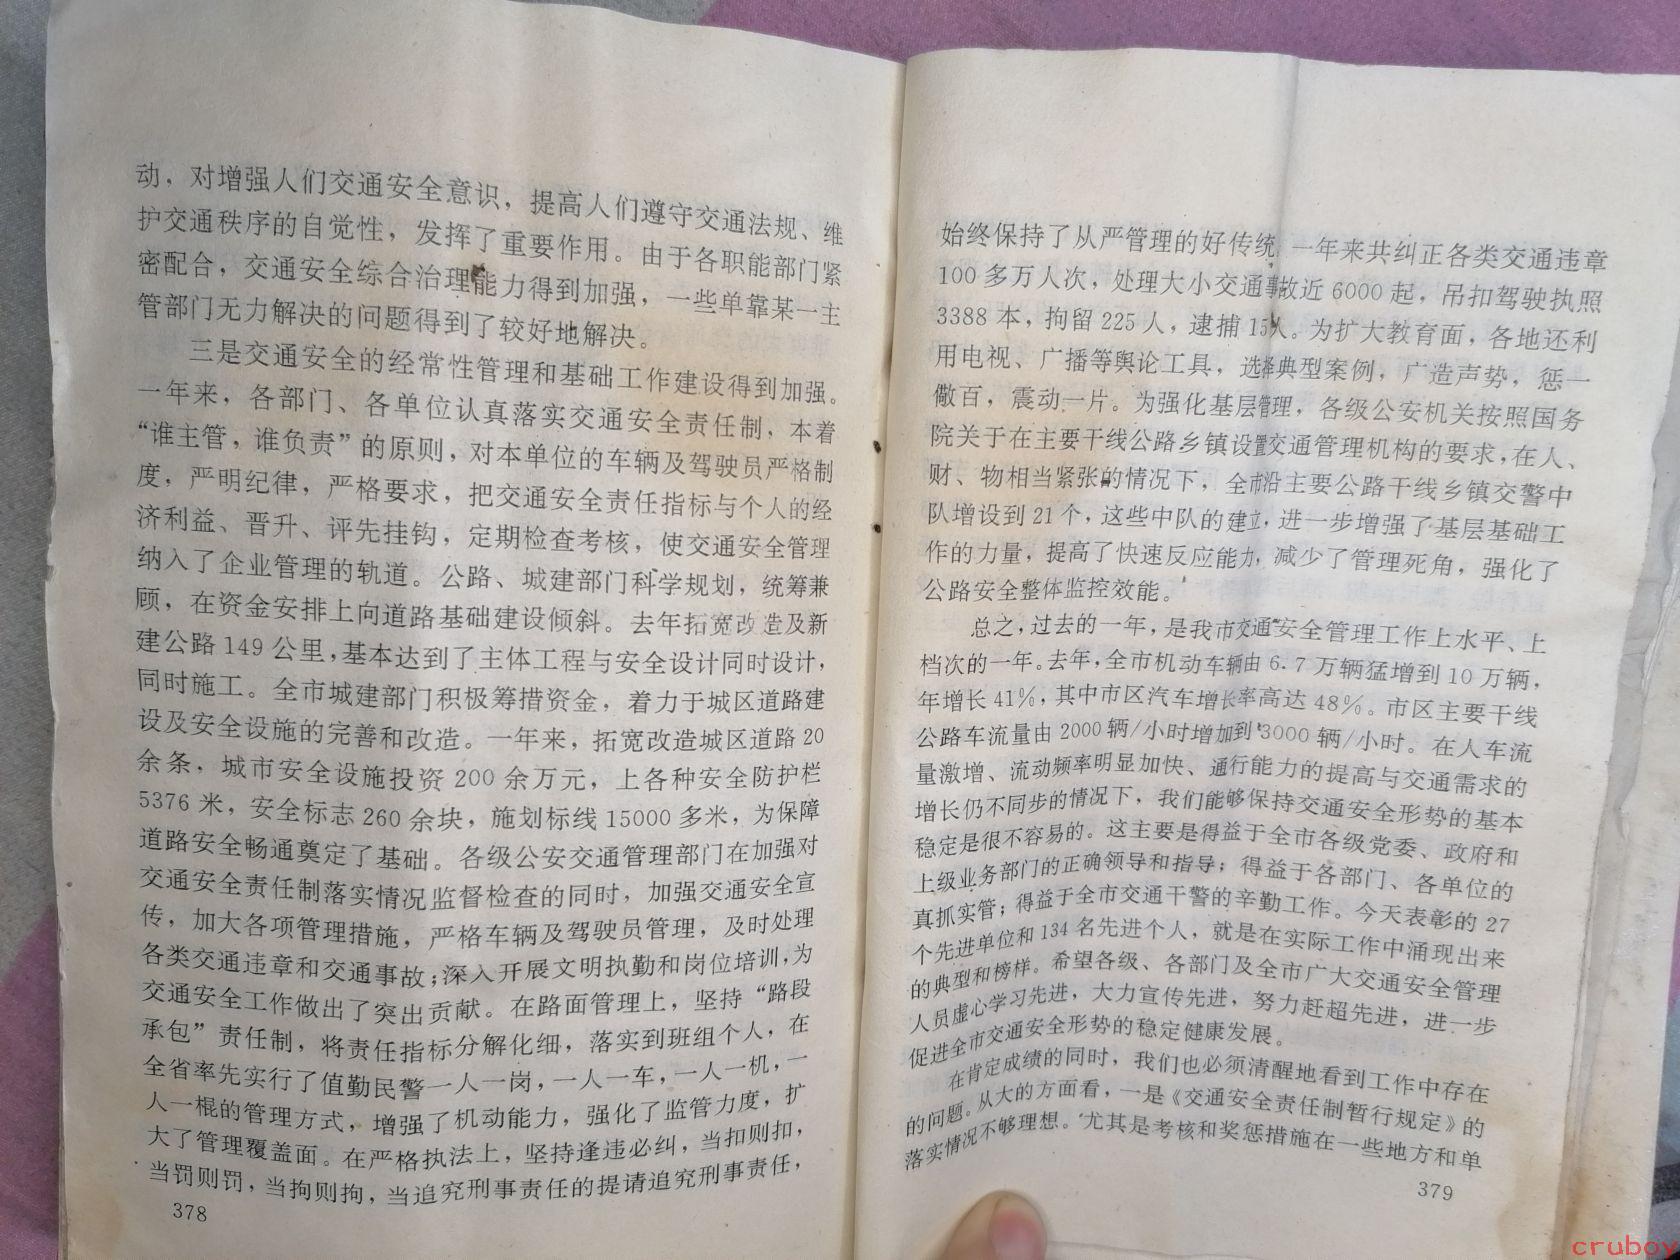 动，对增强人们交通安全意识，提高人们遵守交通法规、维
护交通秩序的自觉性，发挥了重要作用。由于各职能部门紧
密配合，交通安全综合治理能力得到加强，一些单靠某一主
管部门无力解决的问题得到了较好地解决。
三是交通安全的经常性管理和基础工作建设得到加强。
一年来，各部门、各单位认真落实交通安全责任制，本着
“谁主管，谁负责”的原则，对本单位的车辆及驾驶员严格制
度，严明纪律，严格要求，把交通安全责任指标与个人的经
济利益、晋升、评先挂钩，定期检查考核，使交通安全管理
纳入了企业管理的轨道。公路、城建部门科学规划，统筹兼
顾，在资金安排上向道路基础建设倾斜。去年拓宽改造及新
建公路149公里，基本达到了主体工程与安全设计同时设计，
同时施工。全市城建部门积极筹措资金，着力于城区道路建
设及安全设施的完善和改造。一年来，拓宽改造城区道路20
余条，城市安全设施投资200余万元，上各种安全防护栏
5376米，安全标志260余块，施划标线15000多米，为保障
道路安全畅通奠定了基础。各级公安交通管理部门在加强对
交通安全责任制落实情况监督检查的同时，加强交通安全宣
传，加大各项管理措施，严格车辆及驾驶员管理，及时处理
各类交通违章和交通事故；深入开展文明执勤和岗位培训，为
交通安全工作做出了突出贡献。在路面管理上，坚持“路段
承包”责任制，将责任指标分解化细，落实到班组个人，在
全省率先实行了值勤民警一人一岗，一人一车，一人一机，一
人一棍的管理方式，增强了机动能力，强化了监管力度，扩
大了管理覆盖面。在严格执法上，坚持逢违必纠，当扣则扣，
当罚则罚，当拘则拘，当追究刑事责任的提请追究刑事责任，
378
始终保持了从严管理的好传统，一年来共纠正各类交通违章
100多万人次，处理大小交通事故近6000起，吊扣驾驶执照
3388本，拘留225人，逮捕15人。为扩大教育面，各地还利
用电视、广播等舆论工具，选择典型案例，广造声势，惩一
儆百，震动一片。为强化基层管理，各级公安机关按照国务
院关于在主要干线公路乡镇设置交通管理机构的要求，在人、
财、物相当紧张的情况下，全市沿主要公路干线乡镇交警中
队增设到21个，这些中队的建立，进一步增强了基层基础工
作的力量，提高了快速反应能力，减少了管理死角，强化了
公路安全整体监控效能。
总之，过去的一年，是我市交通安全管理工作上水平、上
档次的一年。去年，全市机动车辆由6.7万辆猛增到10万辆，
年增长41％，其中市区汽车增长率高达48％。市区主要干线
公路车流量由2000辆/小时增加到3000辆/小时。在人车流
量激增、流动频率明显加快、通行能力的提高与交通需求的
增长仍不同步的情况下，我们能够保持交通安全形势的基本
稳定是很不容易的。这主要是得益于全市各级党委、政府和
上级业务部门的正确领导和指导；得益于各部门、各单位的
真抓实管；得益于全市交通干警的辛勤工作。今天表彰的27
个先进单位和134名先进个人，就是在实际工作中涌现出来
的典型和榜样。希望各级、各部门及全市广大交通安全管理
人员虚心学习先进，大力宣传先进，努力赶超先进，进一步
促进全市交通安全形势的稳定健康发展。
在肯定成绩的同时，我们也必须清醒地看到工作中存在
的问题。从大的方面看，一是《交通安全责任制暂行规定》的
落实情况不够理想。尤其是考核和奖惩措施在一些地方和单
379
cruboy